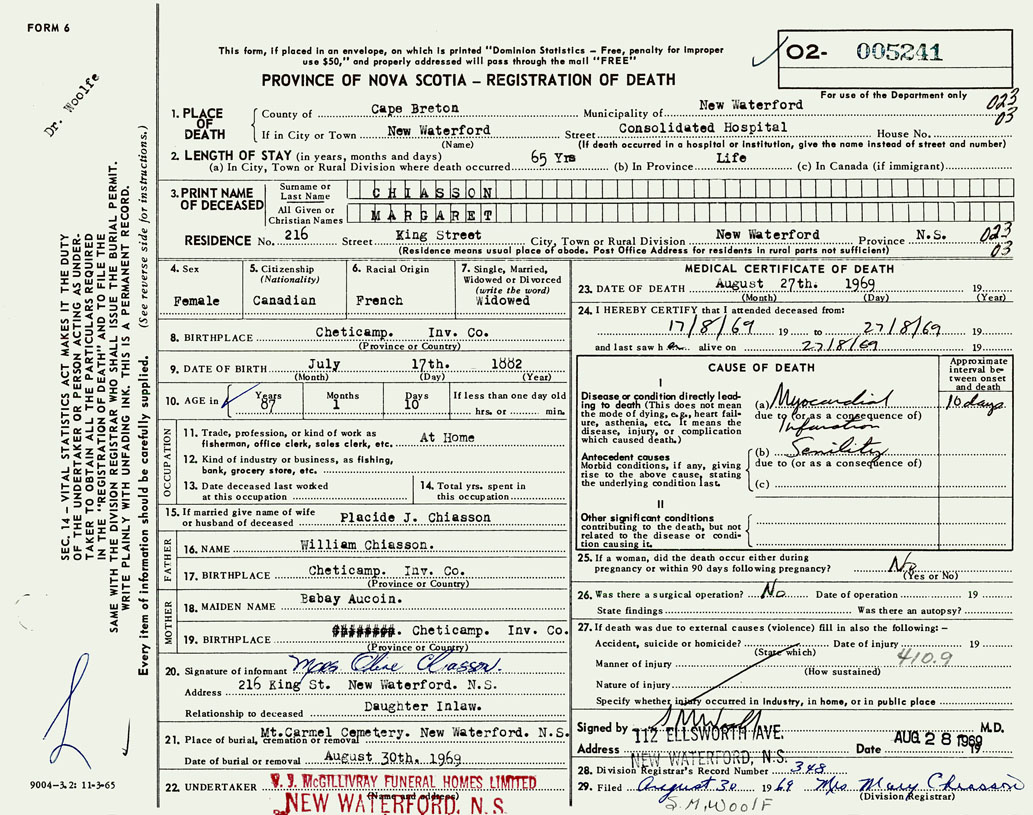 FORM 6
Dr. Woolfe
This form, if placed in an envelope, on which is printed "Dominion Statistics – Free, penalty for improper
use $50," and properly addressed will pass through the mail "FREE"
PROVINCE OF NOVA SCOTIA – REGISTRATION OF DEATH
02- 005241
For use of the Department only
023
03
1. PLACE OF DEATH
County of Cape Breton Municipality of New Waterford
If in City or Town New Waterford Street Consolidated Hospital House No.
(Name) (If death occurred in a hospital or institution, give the name instead of street and number)
2. LENGTH OF STAY (in years, months and days)
(a) In City, Town or Rural Division where death occurred 65 Yrs (b) In Province Life (c) In Canada (if immigrant)
3. PRINT NAME OF DECEASED
Surname or Last Name CHIASSON
All Given or Christian Names MARGARET
RESIDENCE No. 216 Street King Street City, Town or Rural Division New Waterford Province N.S.
(Residence means usual place of abode. Post Office Address for residents in rural parts not sufficient)
023
03
4. Sex
Female
5. Citizenship (Nationality)
Canadian
6. Racial Origin
French
7. Single, Married, Widowed or Divorced (write the word)
Widowed
8. BIRTHPLACE Cheticamp. Inv. Co.
(Province or Country)
9. DATE OF BIRTH July 17th. 1882
(Month) (Day) (Year)
10. AGE in Years 87 Months 1 Days 10 If less than one day old
hrs. or min.
OCCUPATION
11. Trade, profession, or kind of work as fisherman, office clerk, sales clerk, etc. At Home
12. Kind of industry or business, as fishing, bank, grocery store, etc.
13. Date deceased last worked at this occupation
14. Total yrs. spent in this occupation
15. If married give name of wife or husband of deceased Placide J. Chiasson
FATHER
16. NAME William Chiasson.
17. BIRTHPLACE Cheticamp. Inv. Co.
(Province or Country)
MOTHER
18. MAIDEN NAME Babay Aucoin.
19. BIRTHPLACE . Cheticamp. Inv. Co.
(Province or Country)
20. Signature of informant Mrs Chiasson.
Address 216 King St. New Waterford. N.S.
Relationship to deceased Daughter Inlaw.
21. Place of burial, cremation or removal Mt.Carmel Cemetery. New Waterford. N.S.
Date of burial or removal August 30th. 1969
22. UNDERTAKER V. J. McGILLIVRAY FUNERAL HOMES LIMITED
(Name and address)
NEW WATERFORD, N. S.
MEDICAL CERTIFICATE OF DEATH
23. DATE OF DEATH August 27th. 1969 19
(Month) (Day) (Year)
24. I HEREBY CERTIFY that I attended deceased from:
17/8/69 19 to 27/8/69 19
and last saw h er alive on 27/8/69 19
CAUSE OF DEATH
Approximate interval between onset and death
I
Disease or condition directly leading to death (This does not mean the mode of dying, e.g., heart failure, asthenia, etc. It means the disease, injury, or complication which caused death.)
(a) Myocardial 10 days
due to (or as a consequence of)
Infarction
Antecedent causes
Morbid conditions, if any, giving rise to the above cause, stating the underlying condition last.
(b) Senility
due to (or as a consequence of)
(c)
II
Other significant conditions
contributing to the death, but not related to the disease or condition causing it.
25. If a woman, did the death occur either during pregnancy or within 90 days following pregnancy? No
(Yes or No)
26. Was there a surgical operation? No Date of operation 19
State findings Was there an autopsy?
27. If death was due to external causes (violence) fill in also the following: –
Accident, suicide or homicide? Date of injury 19
(State which)
410.9
Manner of injury
(How sustained)
Nature of injury
Specify whether injury occurred in Industry, in home, or in public place
Signed by M.D.
112 ELLSWORTH AVE.
Address NEW WATERFORD, N.S. Date AUG 28 1969 19
28. Division Registrar's Record Number 348
29. Filed August 30 1969 Mrs Mary Chiasson
(Division Registrar)
S.M. WOOLF
SEC. 14 – VITAL STATISTICS ACT MAKES IT THE DUTY
OF THE UNDERTAKER OR PERSON ACTING AS UNDER-
TAKER TO OBTAIN ALL THE PARTICULARS REQUIRED
IN THE "REGISTRATION OF DEATH" AND TO FILE THE
SAME WITH THE DIVISION REGISTRAR WHO SHALL ISSUE THE BURIAL PERMIT.
WRITE PLAINLY WITH UNFADING INK. THIS IS A PERMANENT RECORD.
Every item of information should be carefully supplied. (See reverse side for instructions.)
9004-3.2: 11-3-65